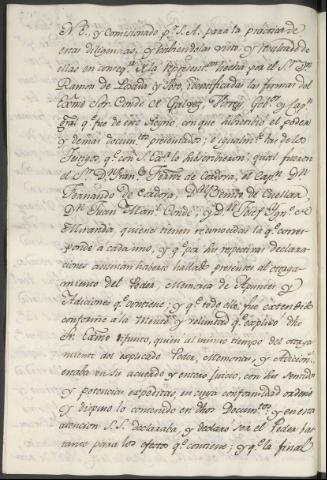 N.E., y comisionado pr. S.A. para la práctica de
estas diligencias, y habiendolas visto, y resultado de
ellas en conseqa. de la Representon. hecha por el Sr. Dn.
Ramon de Posada y Soto, identificadas las firmas del
Exmo Sor. Conde de Galvez, Virrey Govr. y Capn.
Gral. qe. fue de este Reyno, con que authorizó el poder
y demas documtos. presentados; e igualmte. las de los
Testigos qe. con S. Exa. lo subscribieron; qual fueron
el Sr. Dn. Franco. Fernz. de Cordova, el Capn. Dn.
Fernando de Cordova, Dn. Benito de Cuellar,
Dn. Juan Manl. Conde, y Dn. Josef Ign. de
Miranda, quienes tienen reconocidas la qe. corres-
ponde á cada uno, y qe. pr. sus respectivas declara-
ciones asientan haberse hallado presentes al otorga-
miento del Poder, Memoria de Apuntes y
Adiciones qe. contiene; y qe. todo ello fue extendido
conforme á la mente, y voluntad qe. explicó dho
Sr. Exmo difunto, quien al mismo tiempo del otorga-
miento del explicado Poder, Memorias, y Adicions.
estaba en su acuerdo y entero Juicio, con sus sentidos
y potencias expeditas, en cuya conformidad ordenó
y dispuso lo contenido en dhos Documtos. y en esta
atencion S.S. declaraba, y declaró ser el Poder bas-
tante para los efectos qe. contiene; y qe. la final